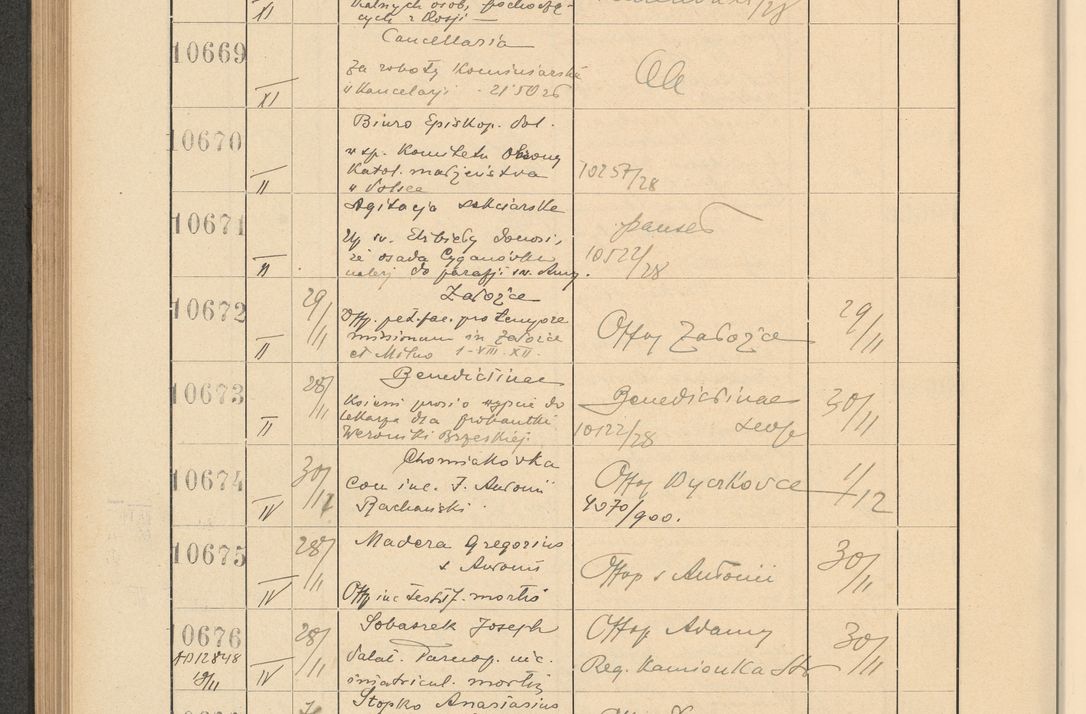 XI
cych z Rosji —
10669
Cancellaria
Za roboty Kominiarskie
w Kancelarji - 21'50
XI
10670
Biuro Episkop. Pol.
w sp. Komitetu Obrony
Katol. małżeństwa
w Polsce
II
10257/28
10671
Agitacja sekciarska
Up sv. Elżbiety donosi,
że osada Cyganówka
należy do parafji sv. Anny.
II
10522/28
10672
29/II
Załoźce
Off. pet. fac. pro tempore
missionum in Załoźce
et Milno 1-VIII-XII.
II
Offoy Załoźce
29/II
10673
28/II
Benedictinae
Ksieni prosi o wyjście do
lekarza dla probantki
Weroniki Brzeskiej.
II
Benedictinae
Leop
10122/28
30/II
10674
30/II
Chomiakówka
Coop. inc. J. Antonii
Rachański.
IV
Offoy Wyczkowce
4070/900.
1/12
10675
28/II
Madera Gregorius
s Antonii
Off inc testif. mortis
IV
Offop s Antonii
30/II
10676
AD12848
28/II
Sobaszek Joseph
Palat. Tarnop. nic.
imatricul. mortis
IV
Offop Adamy
Reg. Kamionka Str
30/II
Stopko Anastasius